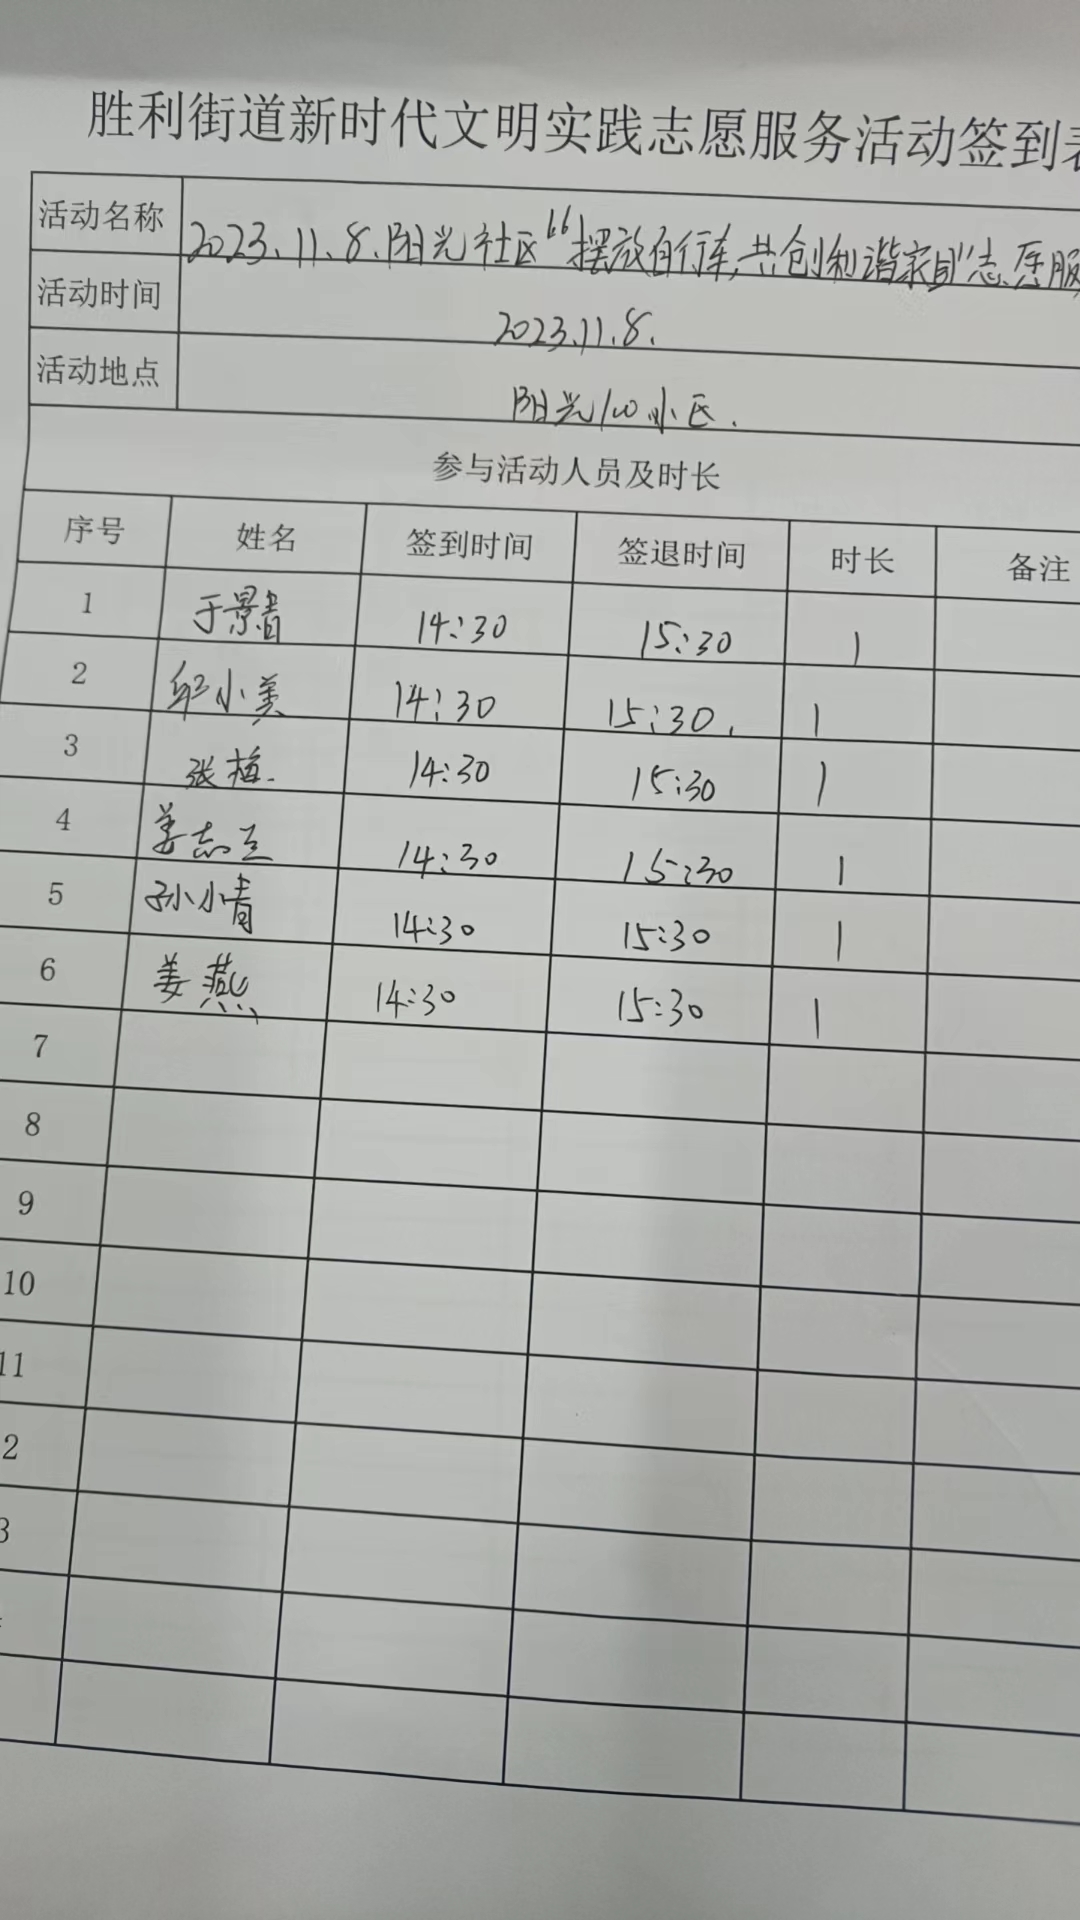 胜利街道新时代文明实践志愿服务活动签到表
活动名称 2023.11.8.阳光社区“摆放自行车,共创和谐家园”志愿服
活动时间 2023.11.8.
活动地点 阳光100小区.
参与活动人员及时长
序号 姓名 签到时间 签退时间 时长 备注
1 于景青 14:30 15:30 1
2 小美 14:30 15:30. 1
3 张梅. 14:30 15:30 1
4 姜志 14:30 15:30 1
5 孙小青 14:30 15:30 1
6 姜燕 14:30 15:30 1
7
8
9
10
11
2
3